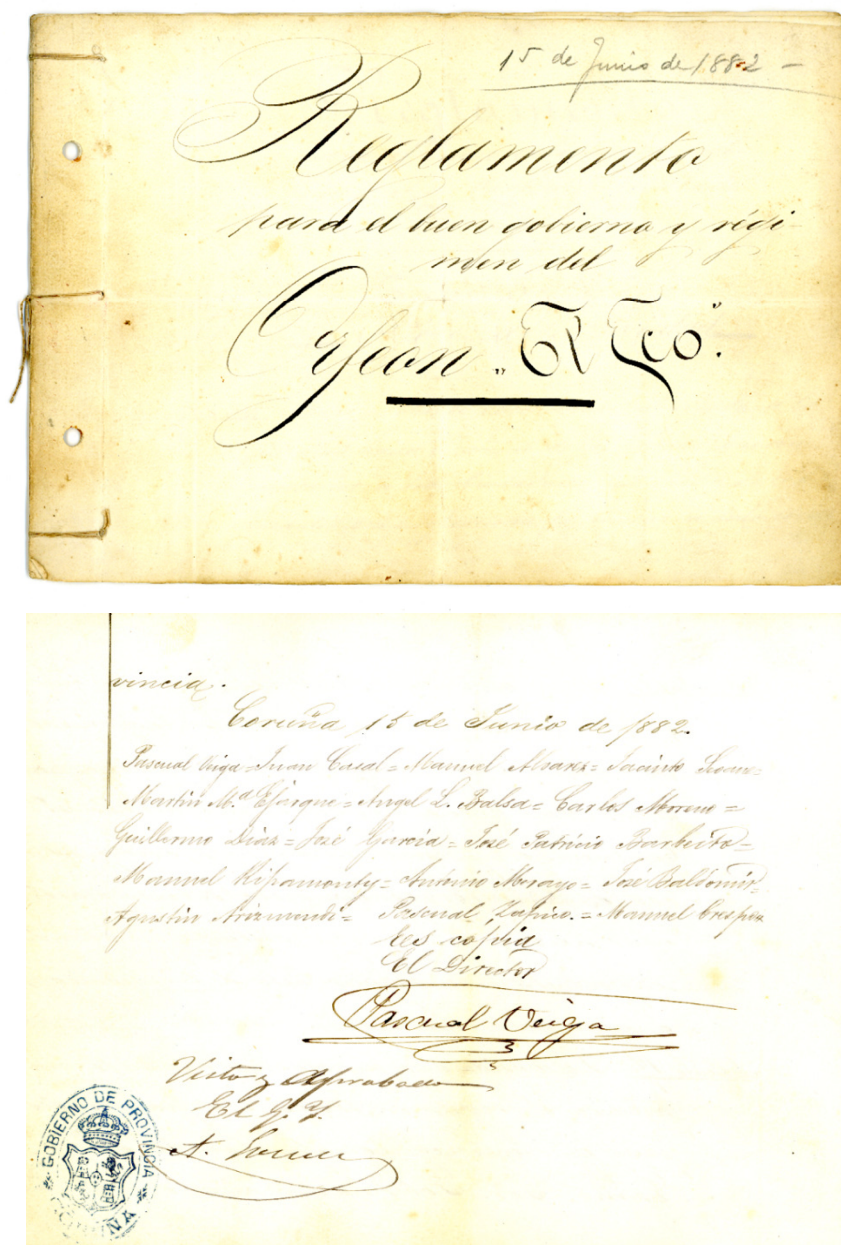 15 de Junio de 1882 -
Reglamento
para el buen gobierno y régi-
men del
Orfeon „El Eco".
vincia.
Coruña 15 de Junio de 1882.
Pascual Veiga = Juan Casal = Manuel Alvarez = Jacinto Seoane =
Martin M.ª Efarque = Angel L. Balsa = Carlos Moreno =
Guillermo Diaz = José Garcia = José Patricio Barbeito =
Manuel Ripamonty = Antonio Morayo = José Baldomir =
Agustin Arizmendi = Pascual Zapico. = Manuel Crespo
Es copia
El Director
Pascual Veiga
Visto y Aprobado
El G. Y.
A.
GOBIERNO DE PROVINCIA
CORUÑA